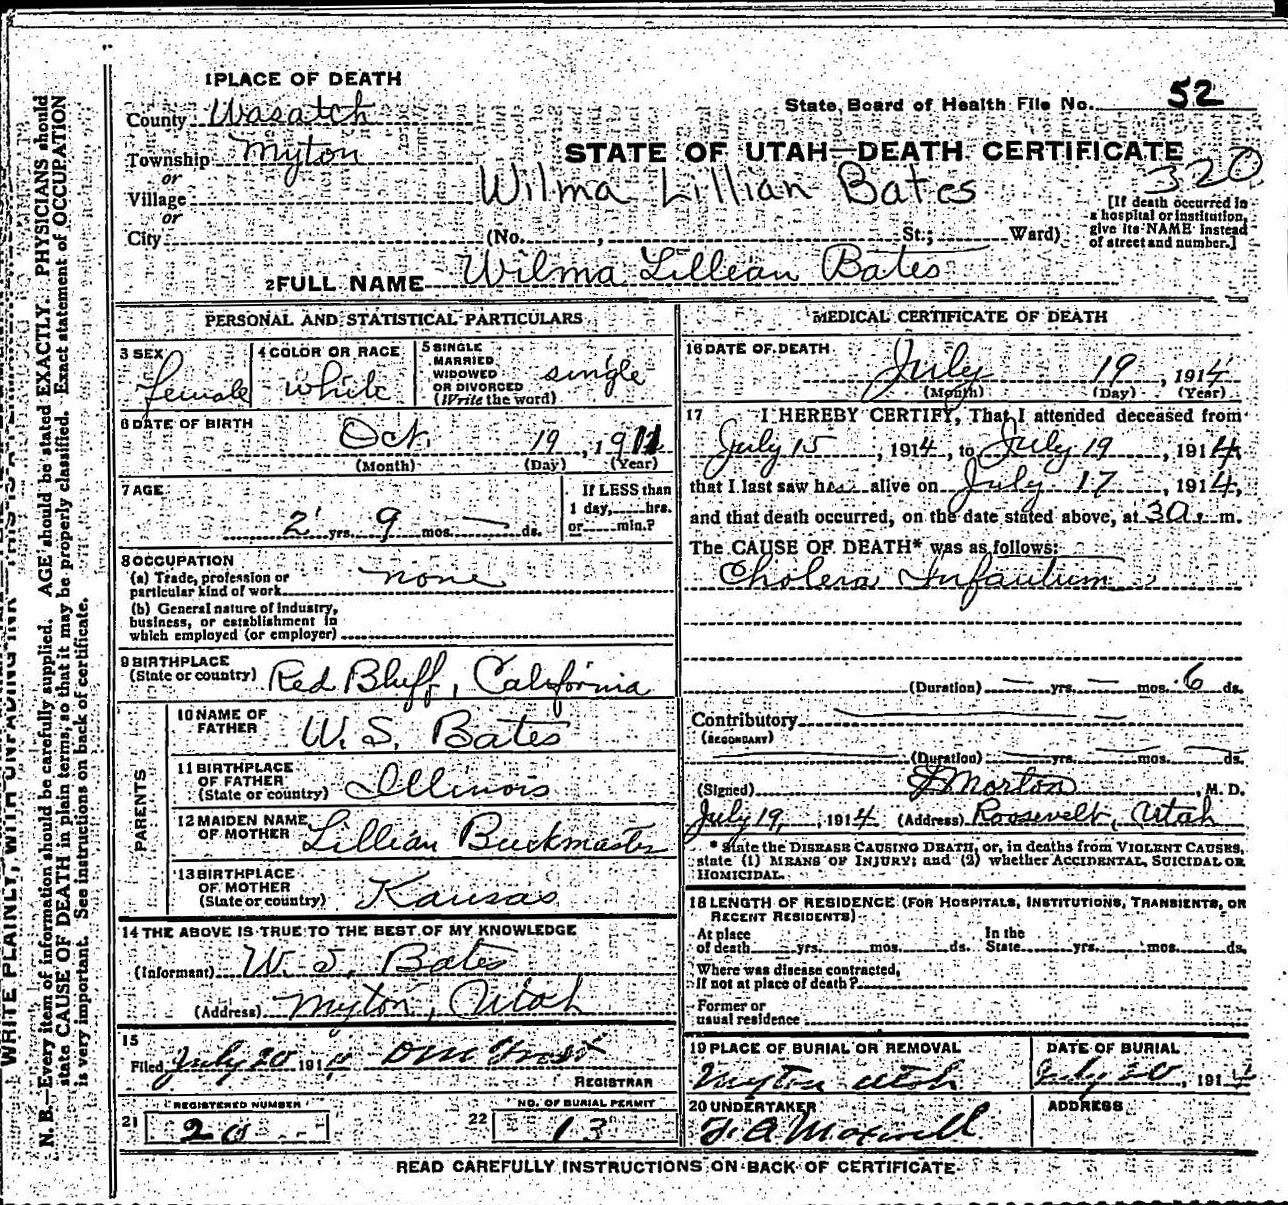 WRITE PLAINLY, WITH UNFADING INK—THIS IS A PERMANENT
N. B.—Every item of information should be carefully supplied. AGE should be stated EXACTLY. PHYSICIANS should
state CAUSE OF DEATH in plain terms, so that it may be properly classified. Exact statement of OCCUPATION
is very important. See instructions on back of certificate.
1 PLACE OF DEATH
County Wasatch
State Board of Health File No. 52
Township Myton
STATE OF UTAH—DEATH CERTIFICATE
320
or
Village
Wilma Lillian Bates
or
City (No. , St.; Ward)
[If death occurred in
a hospital or institution,
give its NAME instead
of street and number.]
2 FULL NAME Wilma Lillian Bates
PERSONAL AND STATISTICAL PARTICULARS
3 SEX female
4 COLOR OR RACE white
5 SINGLE
MARRIED
WIDOWED
OR DIVORCED
(Write the word)
single
6 DATE OF BIRTH
Oct. 19, 1911
(Month) (Day) (Year)
7 AGE
2 yrs. 9 mos. — ds.
If LESS than
1 day, hrs.
or min.?
8 OCCUPATION
(a) Trade, profession or
particular kind of work none
(b) General nature of industry,
business, or establishment in
which employed (or employer)
9 BIRTHPLACE
(State or country) Red Bluff, California
PARENTS
10 NAME OF
FATHER W. S. Bates
11 BIRTHPLACE
OF FATHER
(State or country) Illinois
12 MAIDEN NAME
OF MOTHER Lillian Buckmaster
13 BIRTHPLACE
OF MOTHER
(State or country) Kansas
14 THE ABOVE IS TRUE TO THE BEST OF MY KNOWLEDGE
(Informant) W. S. Bates
(Address) Myton, Utah
15
Filed July 20 1914
REGISTRAR
21
REGISTERED NUMBER
20
22
NO. OF BURIAL PERMIT
13
MEDICAL CERTIFICATE OF DEATH
16 DATE OF DEATH
July 19, 1914
(Month) (Day) (Year)
17 I HEREBY CERTIFY, That I attended deceased from
July 15, 1914, to July 19, 1914,
that I last saw her alive on July 17, 1914,
and that death occurred, on the date stated above, at 3 a. m.
The CAUSE OF DEATH* was as follows:
Cholera Infantum
(Duration) — yrs. — mos. 6 ds.
Contributory
(SECONDARY)
(Duration) yrs. mos. ds.
(Signed) Morton, M. D.
July 19, 1914 (Address) Roosevelt, Utah
* State the DISEASE CAUSING DEATH, or, in deaths from VIOLENT CAUSES,
state (1) MEANS OF INJURY; and (2) whether ACCIDENTAL, SUICIDAL OR
HOMICIDAL.
18 LENGTH OF RESIDENCE (FOR HOSPITALS, INSTITUTIONS, TRANSIENTS, OR
RECENT RESIDENTS)
At place
of death yrs. mos. ds.
In the
State yrs. mos. ds.
Where was disease contracted,
if not at place of death?
Former or
usual residence
19 PLACE OF BURIAL OR REMOVAL
Myton Utah
DATE OF BURIAL
July 20, 1914
20 UNDERTAKER
F. A. Maxwell
ADDRESS
READ CAREFULLY INSTRUCTIONS ON BACK OF CERTIFICATE.